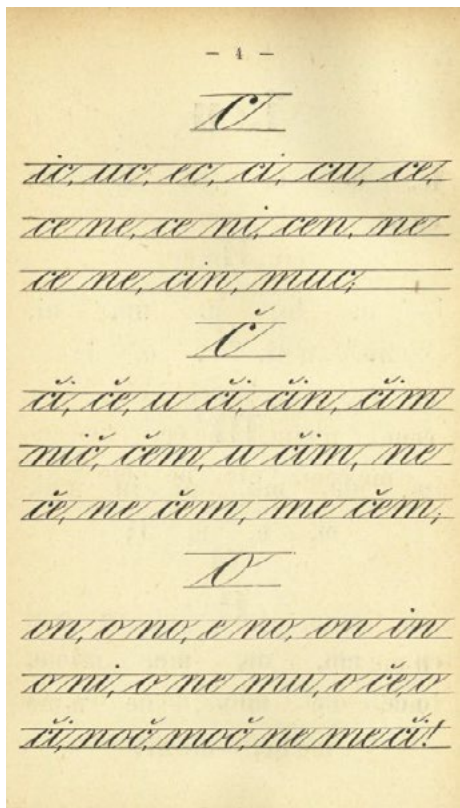 - 4 -
c
ic, uc, ec, ci, cu, ce,
ce ne, ce ni, cen, ne
ce ne, cin, muc;
č
či, če, u či, čin, čim
nič, čem, u čim, ne
če, ne čem, me čem;
o
on, o no, e no, on in
o ni, o ne mu, o če, o
či, noč, moč, ne me či!